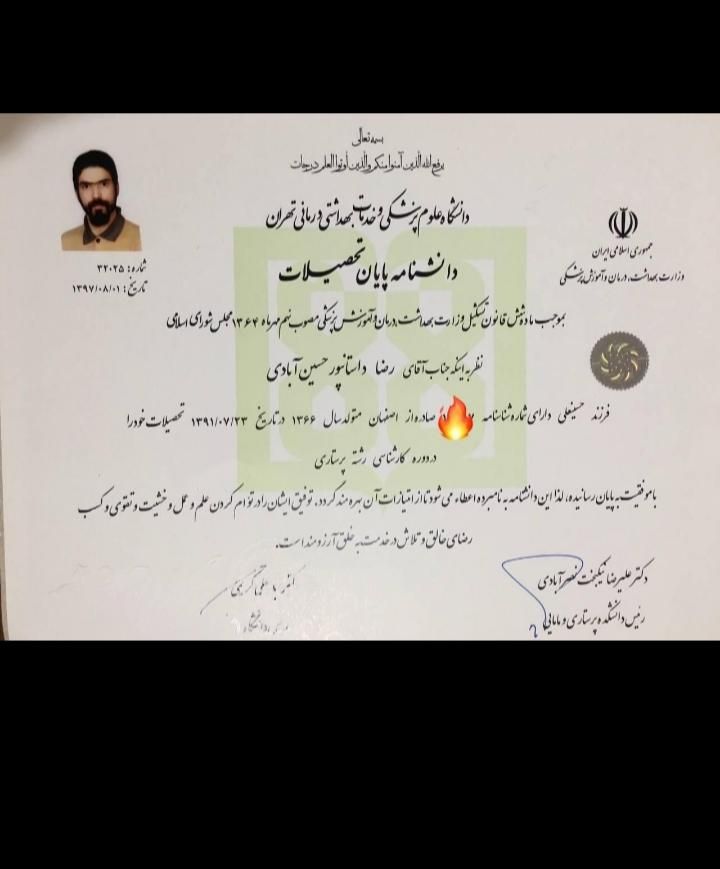 بسمه تعالی
یرفع الله الذین آمنوا منکم والذین اوتوا العلم درجات
دانشگاه علوم پزشکی و خدمات بهداشتی درمانی تهران
دانشنامه پایان تحصیلات
جمهوری اسلامی ایران
وزارت بهداشت، درمان و آموزش پزشکی
شماره: ۳۲۰۲۵
تاریخ: ۱۳۹۷/۰۸/۰۱
بموجب ماده شش قانون تشکیل وزارت بهداشت، درمان و آموزش پزشکی مصوب نهم مهرماه ۱۳۶۴ مجلس شورای اسلامی
نظر به اینکه جناب آقای رضا داستانپور حسین آبادی
فرزند حسینعلی دارای شماره شناسنامه صادره از اصفهان متولد سال ۱۳۶۶ در تاریخ ۱۳۹۱/۰۷/۲۳ تحصیلات خود را
در دوره کارشناسی رشته پرستاری
با موفقیت به پایان رسانیده، لذا این دانشنامه به نامبرده اعطاء می شود تا از امتیازات آن بهره مند گردد. توفیق ایشان را در توام کردن علم و عمل و خشیت و تقوی و کسب
رضای خالق و تلاش در خدمت به خلق آرزومند است.
دکتر علیرضا نیکبخت نصرآبادی
رئیس دانشکده پرستاری و مامایی